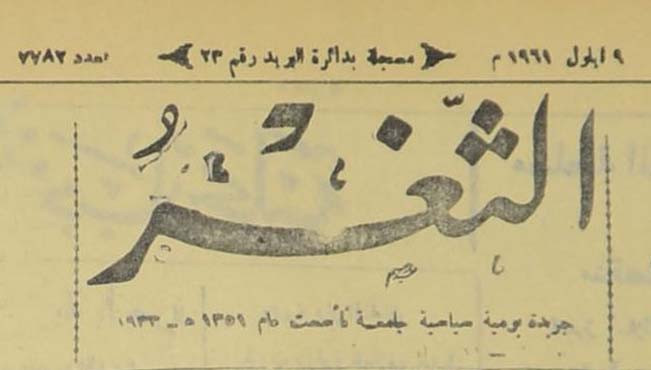 ٩ ايلول ١٩٦١ م مسجلة بدائرة البريد رقم ٢٣ العدد ٧٧٨٢
الثَّغْرُ
جريدة يومية سياسية جامعة تأسست عام ١٣٥١ ه - ١٩٣٣